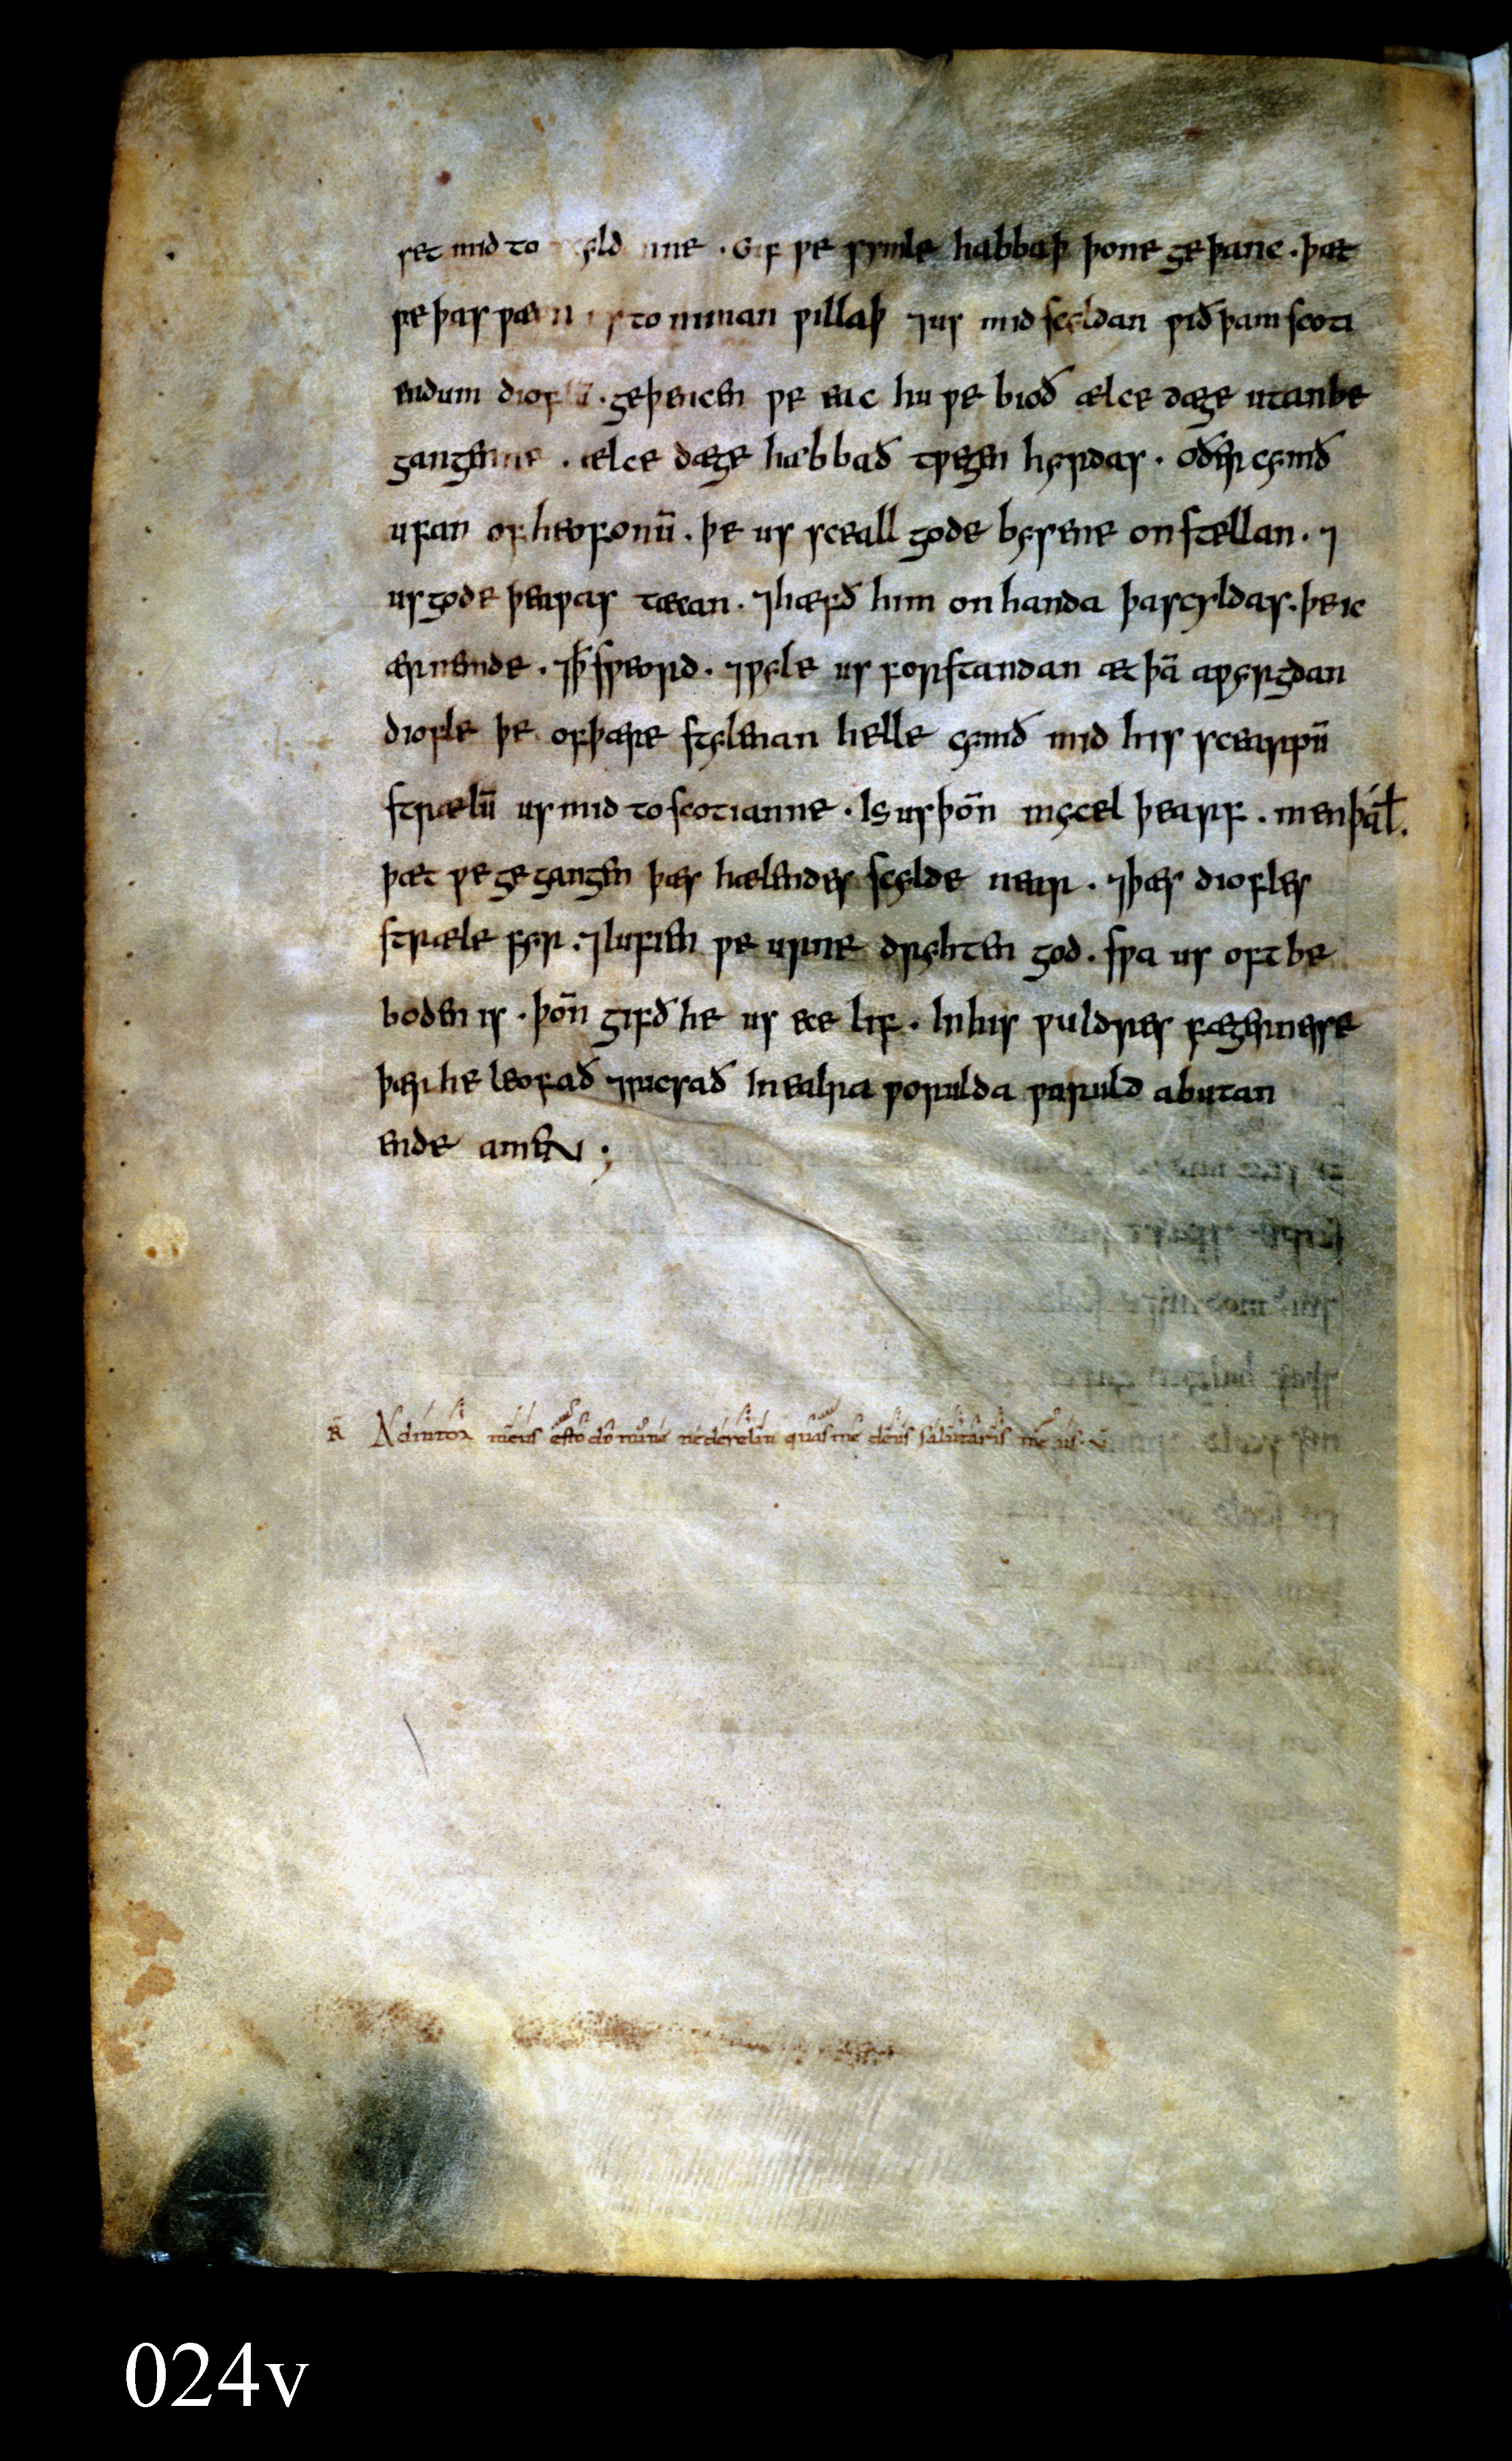 set mid to gescyldanne · Gif ƿe symle habbaþ þone geþanc · þæt
ƿe þas ƿæpnu us to niman ƿillaþ ⁊us mid scyldan ƿið þam scoti
endum dioflū · geþencen ƿe eac hu ƿe bioð ælce dæge utanbe
gangenne · ælce dæge habbað tƿegen hyrdas · oðer cymð
ufan of heofonū · þe us sceall gode bysene onstellan · ⁊
us gode þeaƿas tæcan · ⁊hæfð him on handa þa scyldas · þe ic
ær nemde · ⁊þ sƿeord · ⁊ƿyle us forstandan æt þā aƿyrgdan
diofle þe of þære stylenan helle cymð mid his scearpū
strælū us mid to scotianne · Is us þoñ mycel þearf · men þa ł.
þæt ƿe gegangen þæs hælendes scylde near · ⁊þæs diofles
stræle fyr · ⁊lufien ƿe urne dryhten god · sƿa us oft be
boden is · þoñ gifð he us ece lif · In his ƿuldres fægernesse
þær he leofað ⁊ricsað In ealra ƿorulda ƿoruld abutan
ende ameN ;
R̄ Adiutor meus esto domine ne derelinquas me deus salutaris meus · ꝟ
024v